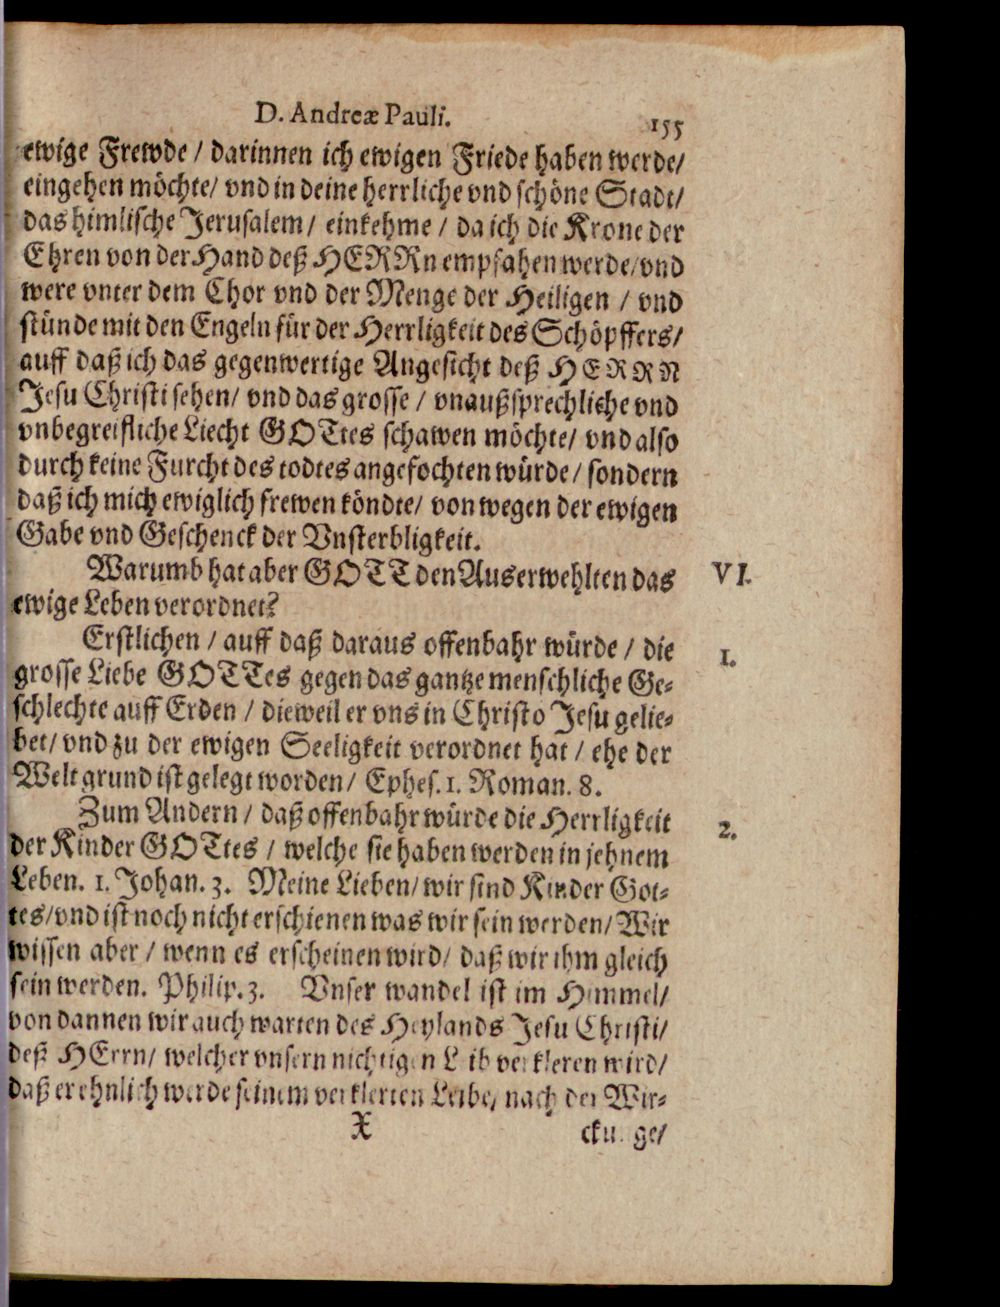 D. Andreæ Pauli. 155
ewige Frewde / darinnen ich ewigen Friede haben werde/
eingehen möchte/ vnd in deine herrliche vnd schöne Stadt/
das himlische Jerusalem / einkehme / da ich die Krone der
Ehren von der Hand deß HERRn empfahen werde/ vnd
were vnter dem Chor vnd der Menge der Heiligen / vnd
stünde mit den Engeln für der Herrligkeit des Schöpffers/
auff daß ich das gegenwertige Angesicht deß HERRN
Jesu Christi sehen/ vnd das grosse / vnaußsprechliche vnd
vnbegreifliche Liecht GOTtes schawen möchte/ vnd also
durch keine Furcht des todtes angefochten würde/ sondern
daß ich mich ewiglich frewen köndte/ von wegen der ewigen
Gabe vnd Geschenck der Vnsterbligkeit.
Warumb hat aber GOTT den Auserwehlten das VI.
ewige Leben verordnet?
Erstlichen / auff daß daraus offenbahr würde / die 1.
grosse Liebe GOTTes gegen das gantze menschliche Ge-
schlechte auff Erden / dieweil er vns in Christo Jesu gelie-
bet/ vnd zu der ewigen Seeligkeit verordnet hat / ehe der
Welt grund ist gelegt worden/ Ephes. 1. Roman. 8.
Zum Andern / daß offenbahr würde die Herrligkeit 2.
der Kinder GOTtes / welche sie haben werden in jehnem
Leben. 1. Johan. 3. Meine Lieben/ wir sind Kinder Got-
tes/ vnd ist noch nicht erschienen was wir sein werden/ Wir
wissen aber / wenn es erscheinen wird/ daß wir ihm gleich
sein werden. Philip. 3. Vnser wandel ist im Himmel/
von dannen wir auch warten des Heylands Jesu Christi/
deß HErrn/ welcher vnsern nichtigen Leib verkleren wird/
daß er ehnlich werde seinem verklerten Leibe/ nach der Wir-
X ckunge/